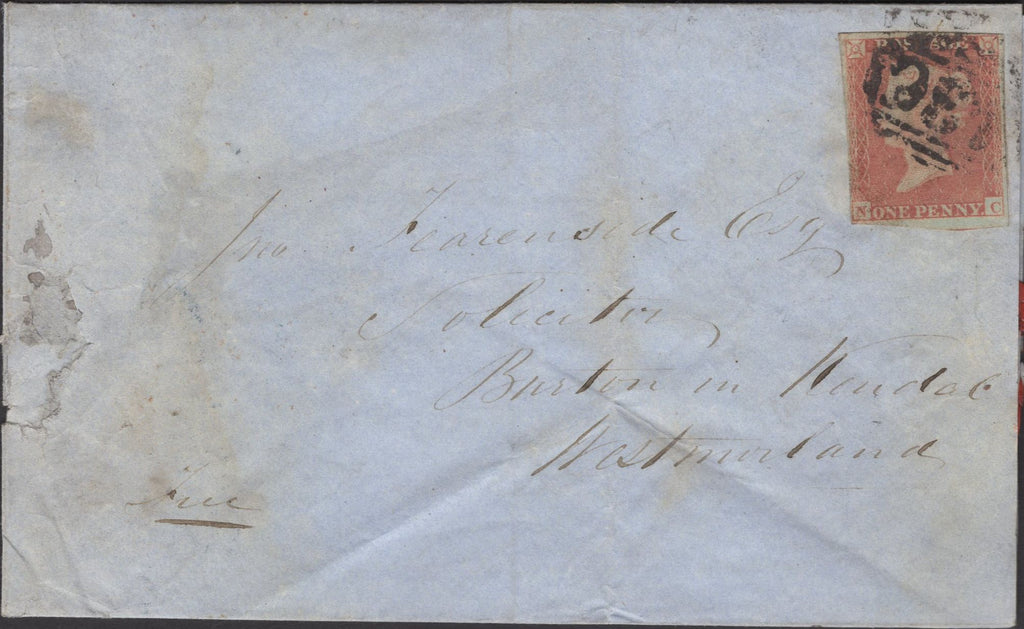 ONE PENNY.
N C
Jno. Fearenside Esq
Solicitor
Burton in Kendal
Westmorland
Free